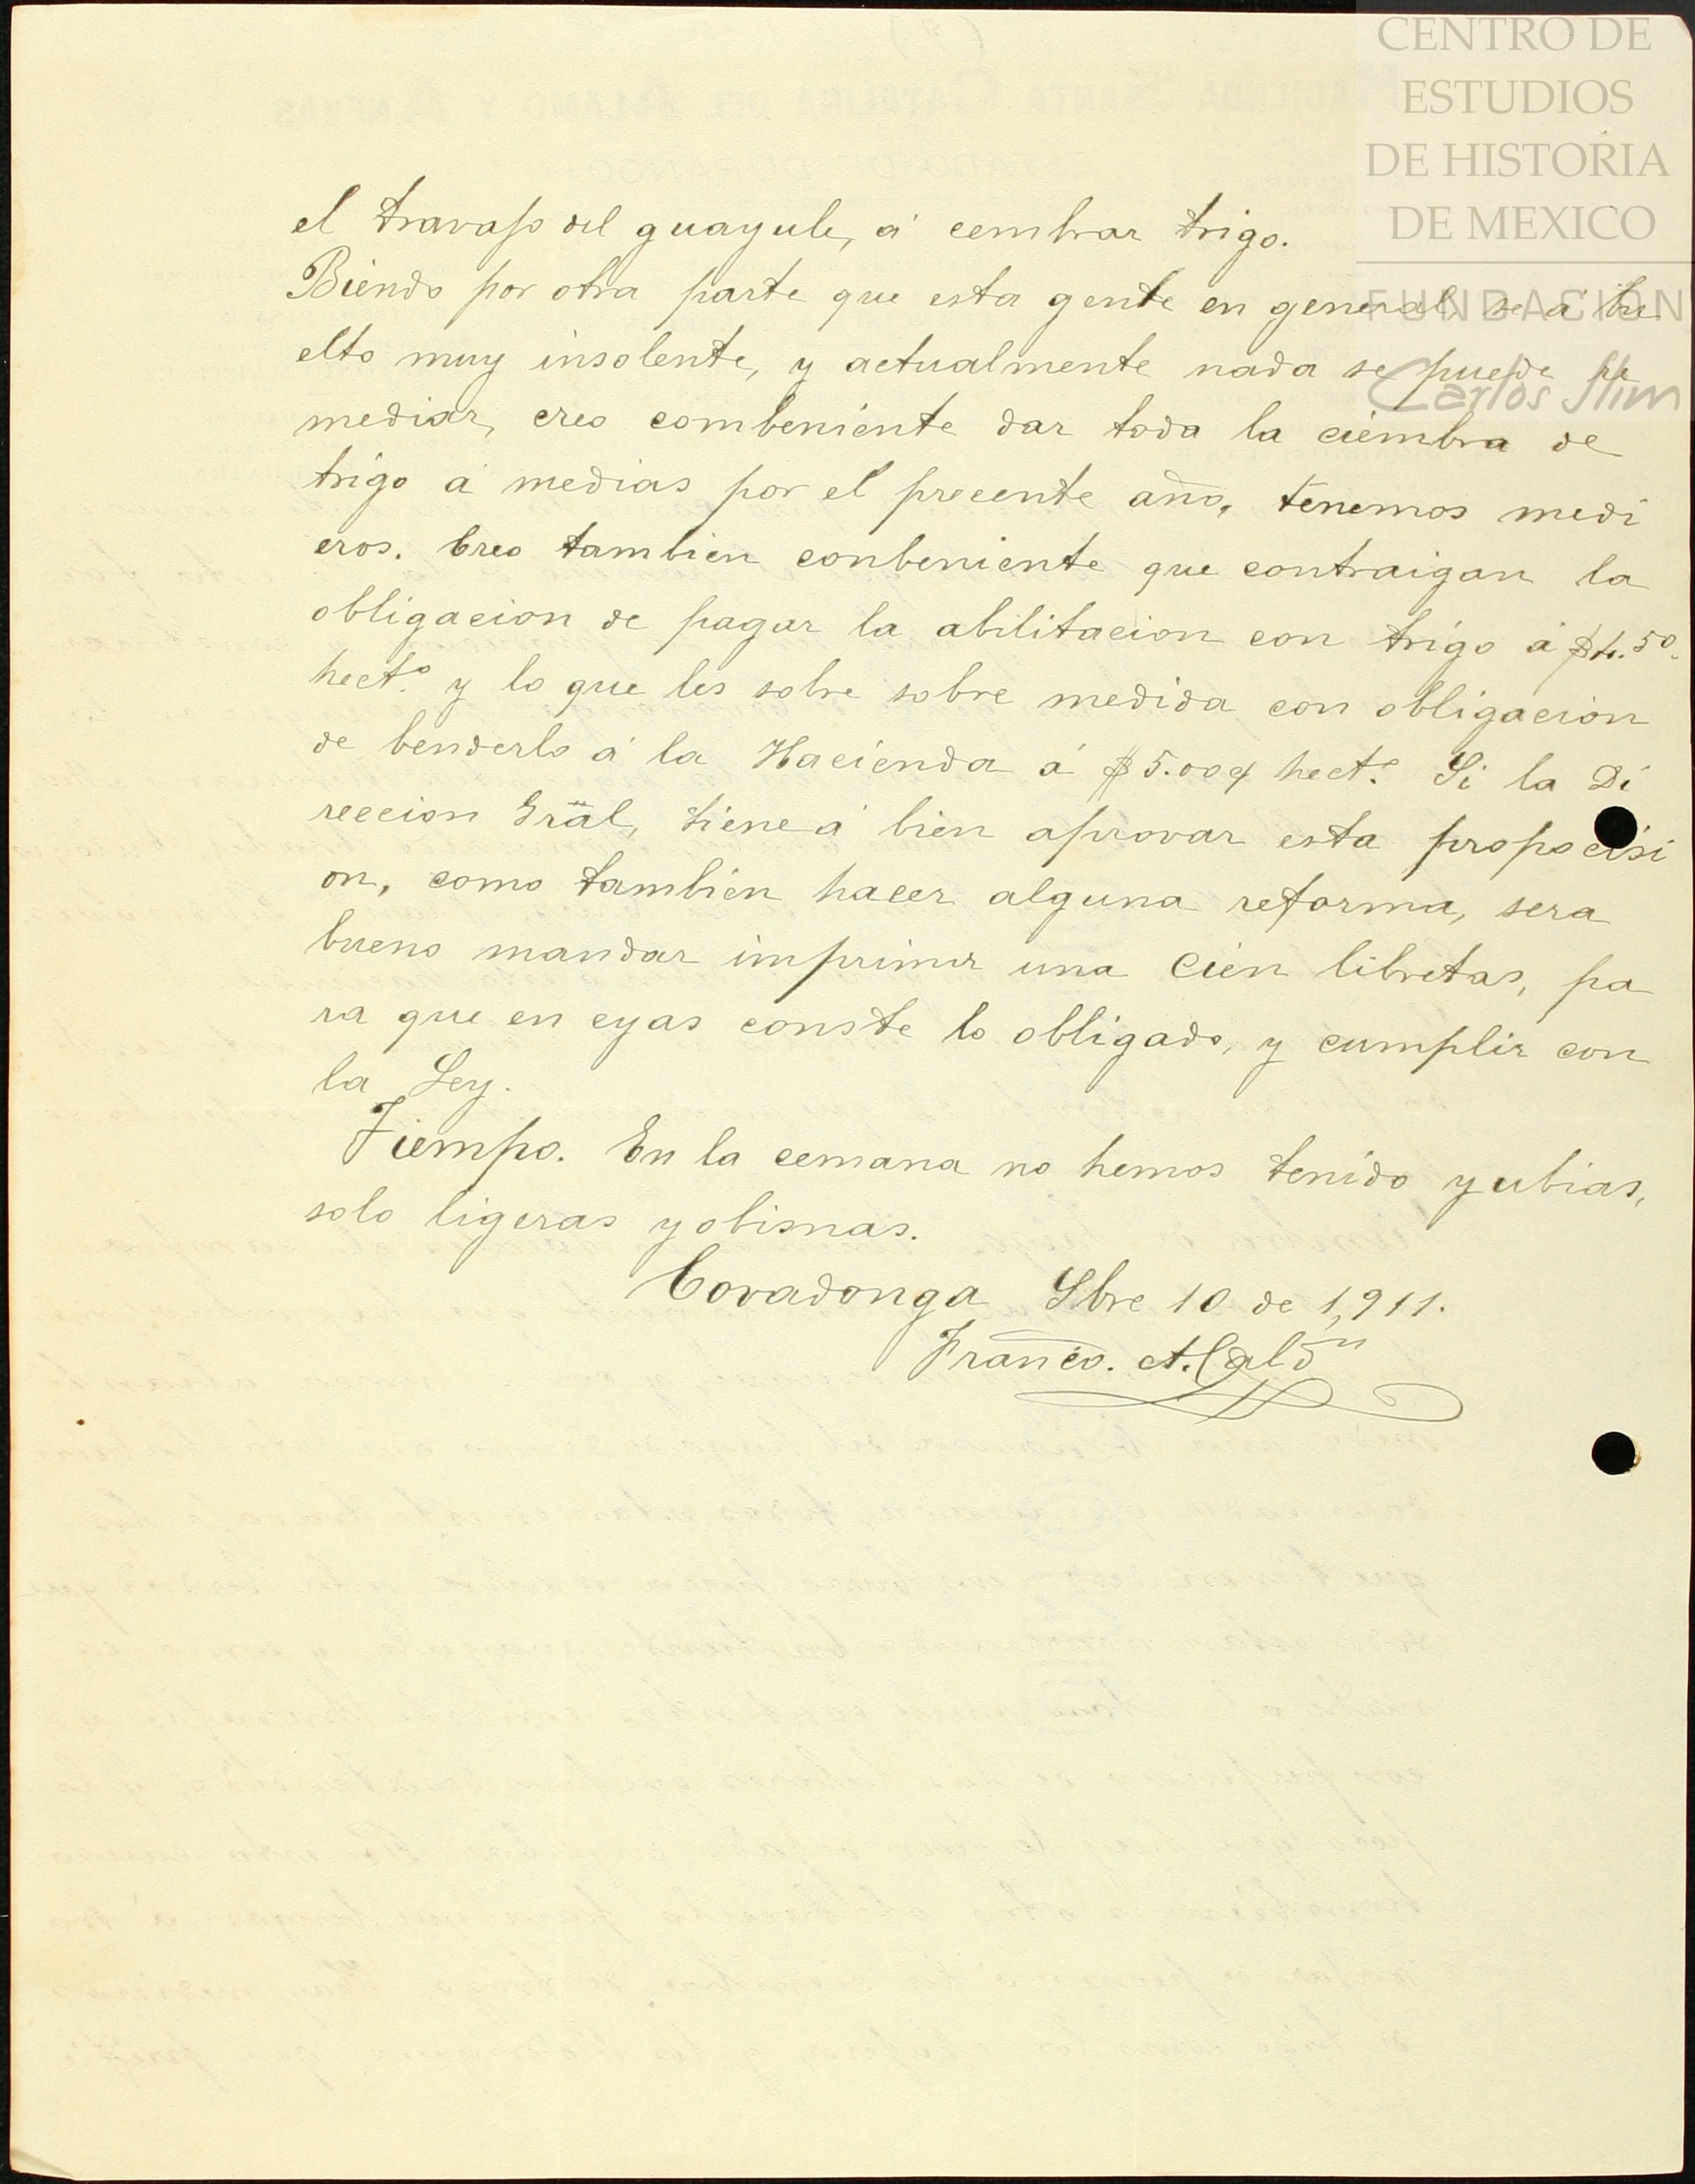 CENTRO DE
ESTUDIOS
DE HISTORIA
DE MEXICO
FUNDACION
Carlos Slim
el travajo del guayule, á cembrar trigo.
Biendo por otra parte que esta gente en general se á bu
elto muy insolente, y actualmente nada se puede re
mediar, creo combeniente dar toda la ciembra de
trigo á medias por el precente año, tenemos medi
eros. Creo tambien conbeniente que contraigan la
obligacion de pagar la abilitacion con trigo á $4.50.
hect.o y lo que les sobre sobre medida con obligacion
de benderlo á la Hacienda á $5.00 hect.o Si la Di
reccion Gral, tiene á bien aprovar esta propocisi
on, como tambien hacer alguna reforma, sera
bueno mandar imprimir una Cien libretas, pa
ra que en eyas conste lo obligado, y cumplir con
la Ley.
Tiempo. En la cemana no hemos tenido yubias,
solo ligeras yobisnas.
Covadonga Sbre 10 de 1,911.
Franco. A. Caldn